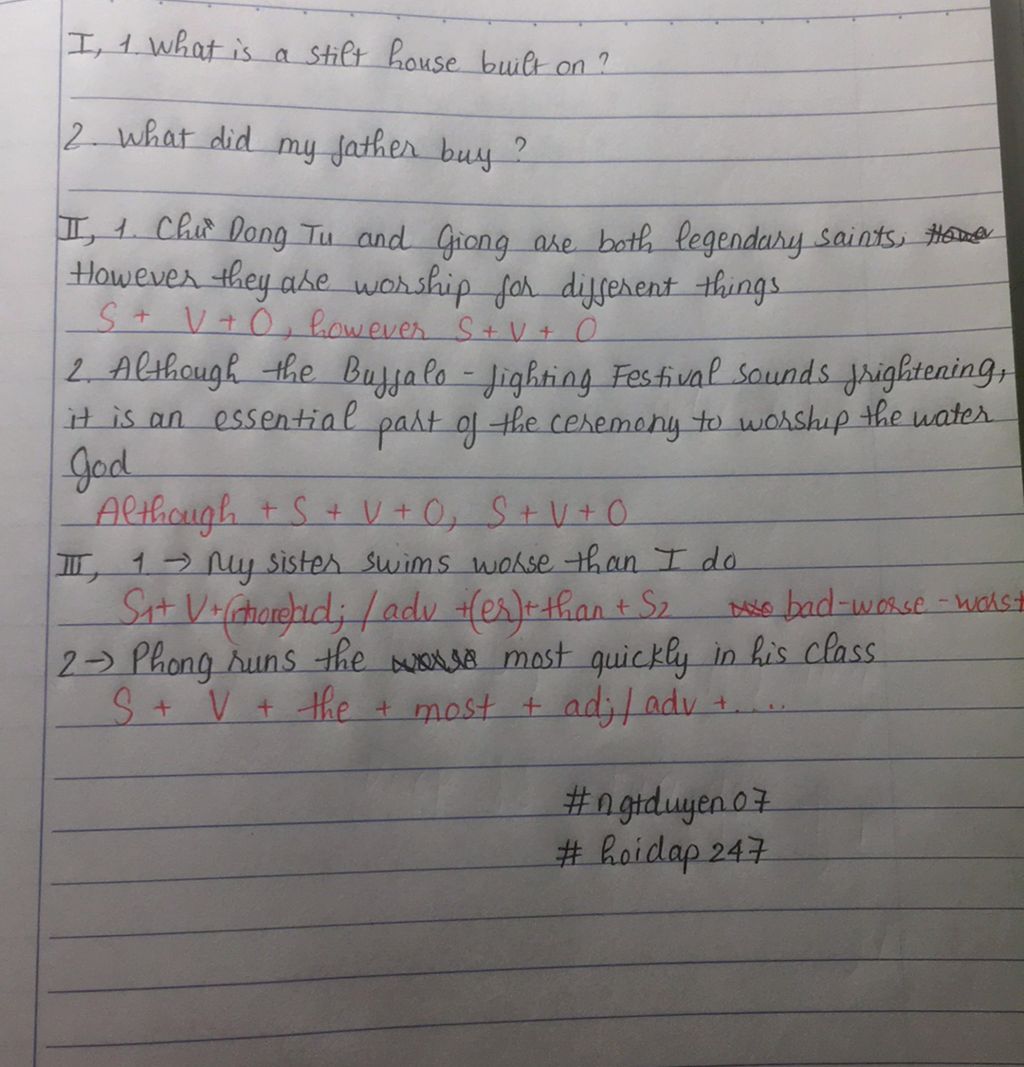 I, 1. What is a stilt house built on?
2. What did my father buy?
II, 1. Chử Dong Tu and Giong are both legendary saints,
However they are worship for different things
S + V + O, however S + V + O
2. Although the Buffalo - fighting Festival sounds frightening,
it is an essential part of the ceremony to worship the water
god
Although + S + V + O, S + V + O
III, 1 → My sister swims worse than I do
S1 + V + (more) adj / adv + (er) + than + S2 bad - worse - worst
2 → Phong runs the most quickly in his class
S + V + the + most + adj / adv + .....
#ngtduyen07
# hoidap247